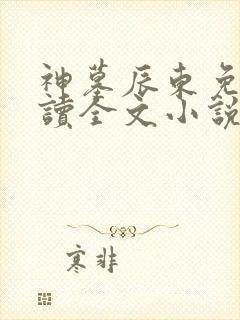 神墓辰東免
讀全文小說
寒非